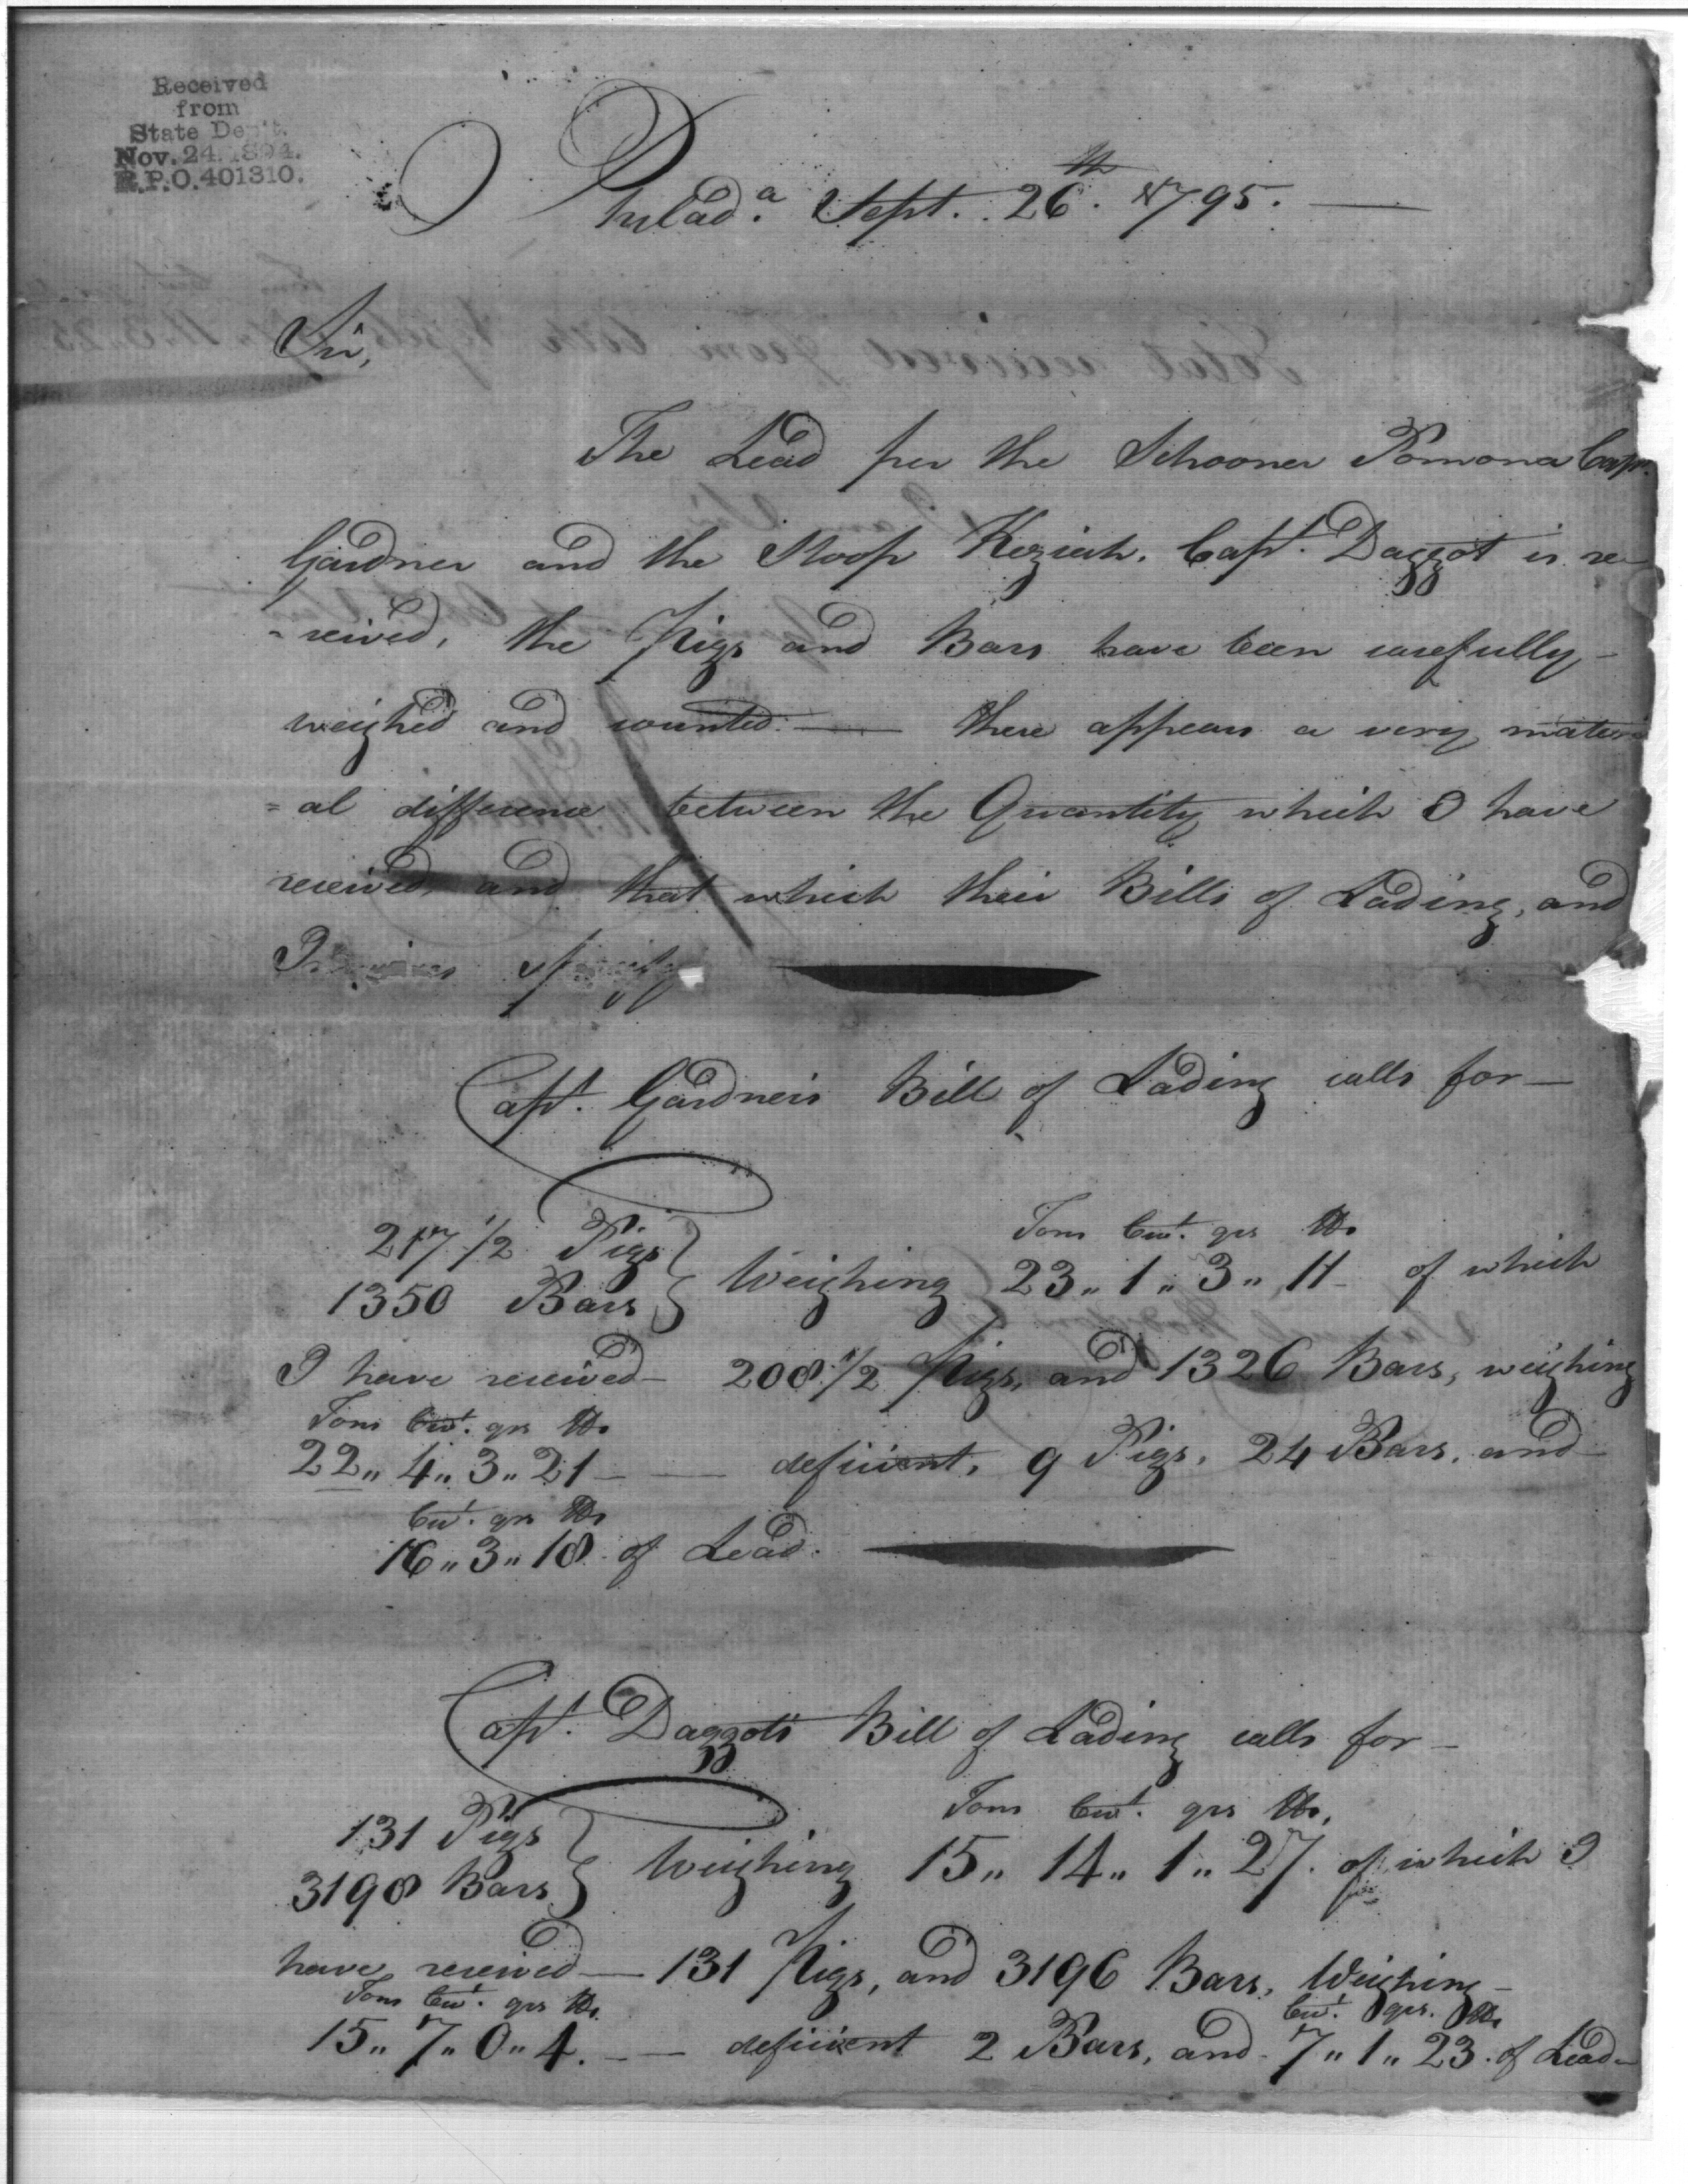 Received
from
State Dep't.
Nov. 24. 1894.
R.P.O. 401310.
Philad.a Sept. 26th. 1795.
Sir,
The Lead per the Schooner Pomona Capt.
Gardner and the Sloop Keziah. Capt. Daggot is re-
=ceived, the Pigs and Bars have been carefully
weighed and counted:— there appears a very materi
=al difference between the Quantity which I have
received, and that which their Bills of Lading, and
Invoices specify
Capt. Gardner's Bill of Lading calls for—
Tons Cwt. qrs lbs
217 1/2 Pigs
1350 Bars } Weighing 23,, 1,, 3,, 11 of which
I have received— 208 1/2 Pigs, and 1326 Bars, weighing
Tons Cwt. qrs lbs
22,, 4,, 3,, 21 — — deficient, 9 Pigs, 24 Bars, and
Cwt. qrs lbs
16,, 3,, 18 of Lead.
Capt. Daggots Bill of Lading calls for—
Tons Cwt. qrs lbs.
131 Pigs
3198 Bars } Weighing 15,, 14,, 1,, 27. of which I
have received— 131 Pigs, and 3196 Bars, Weighing—
Tons Cwt. qrs lbs. Cwt. qrs. lbs
15,, 7,, 0,, 4. — — deficient 2 Bars, and 7,, 1,, 23. of Lead—